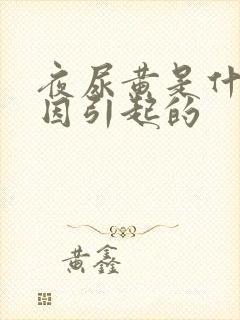 夜尿黄是什
因引起的
黄鑫